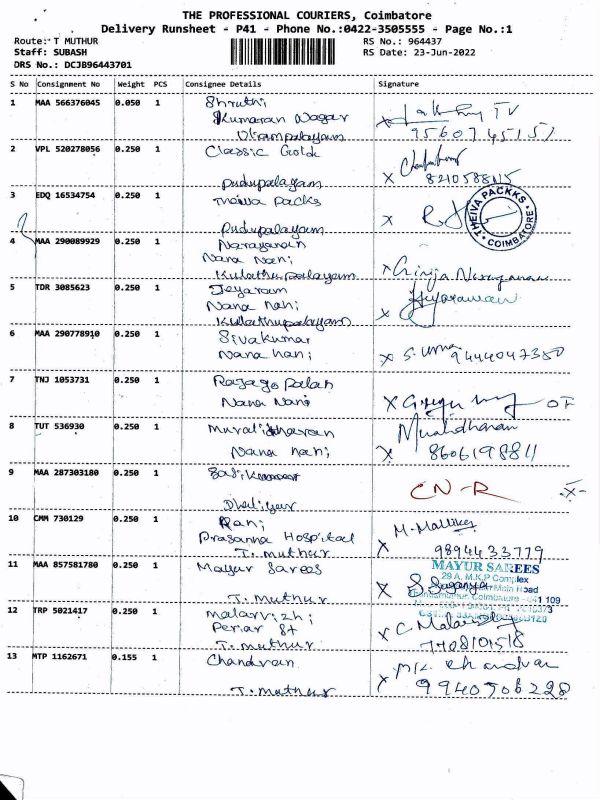 THE PROFESSIONAL COURIERS, Coimbatore
Delivery Runsheet - P41 - Phone No.:0422-3505555 - Page No.:1
Route: T MUTHUR RS No.: 964437
Staff: SUBASH RS Date: 23-Jun-2022
DRS No.: DCJB96443701
S No Consignment No Weight PCS Consignee Details Signature
1 MAA 566376045 0.050 1 Shruthi
Kumaran Nagar TV
Uppampalayam
2 VPL 520278056 0.250 1 Classic Gold
Pudupalayam X
3 EDQ 16534754 0.250 1 Theiva Packs
Pudupalayam X
THEIVA PACKKS
COIMBATORE
4 MAA 290089929 0.250 1 Narayanan
Nana Nani
Kulathupalayam X Girija Narayanan
5 TDR 3085623 0.250 1 Jeyaram
Nana Nani Jeyaraman
Kullathupalayam X
6 MAA 290778910 0.250 1 Sivakumar
Nana nani X S. Uma 9444047380
7 TNJ 1053731 0.250 1 Rajagopalan
Nana Nani X
8 TUT 536930 0.250 1 Muralidharan Muralidharan
Nana nani X 8606198811
9 MAA 287303180 0.250 1 Sasikumar
CN-R -X-
Dhaliyur
10 CMM 730129 0.250 1 Rani
Prasanna Hospital M. Mallika
T. muthur X 9894433779
11 MAA 857581780 0.250 1 Mayur Sarees
T. Muthur X
MAYUR SAREES
29 A, M.K.P Complex
Main Road
Coimbatore - 641 109
12 TRP 5021417 0.250 1 Malarvizhi
Periar St X C. Malarvizhi
T. muthur 7708101518
13 MTP 1162671 0.155 1 Chandran
T. muthur X 9940506228